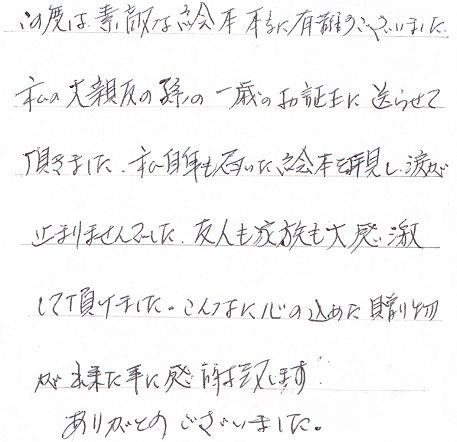 この度は素敵な絵本本当に有難うございました。
私の大親友の孫の一歳のお誕生に送らせて
頂きました。私自身も届いた絵本を拝見し、涙が
止まりませんでした。友人も家族も大感激
して頂けました。こんなに心の込めた贈り物
が出来た事に感謝致します
ありがとうございました。